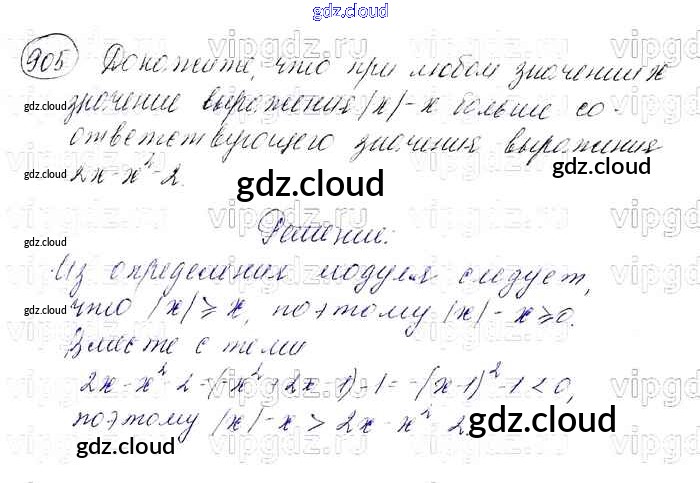 gdz.cloud
905 Докажите, что при любом значении x
gdz.cloud
значение выражения |x|-x больше со-
ответствующего значения выражения
gdz.cloud
2x-x²-2.
gdz.cloud
Решение:
gdz.cloud
Из определения модуля следует,
что |x|⩾x, поэтому |x|-x⩾0.
gdz.cloud
Вместе с тем
2x-x²-2=(-x²+2x-1)-1=-(x-1)²-1<0,
gdz.cloud
поэтому |x|-x > 2x-x²-2
gdz.cloud
gdz.cloud